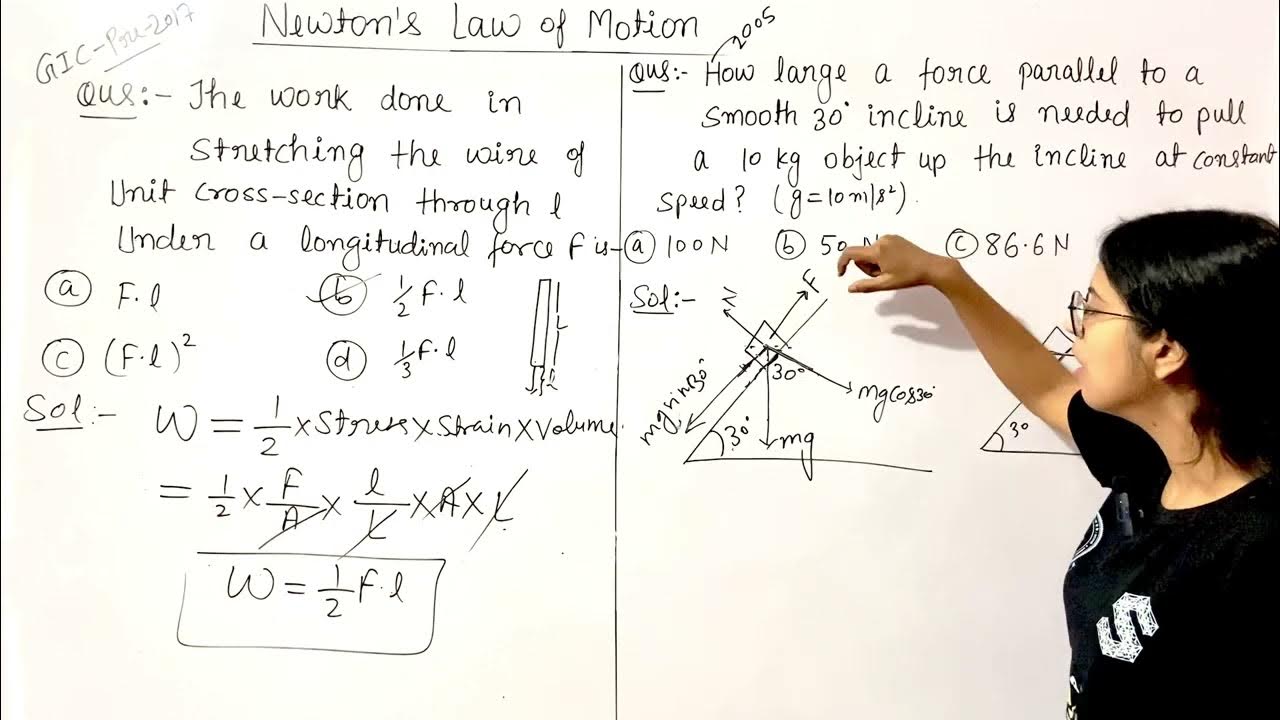 Newton's Law of Motion
GIC-Pre-2017
Qus:- The work done in
stretching the wire of
Unit cross-section through l
Under a longitudinal force F is-
(a) F.l
(b) 1/2 F.l
(c) (F.l)²
(d) 1/3 F.l
L
l
Sol:- W = 1/2 × Stress × Strain × Volume.
= 1/2 × F/A × l/L × A × L
W = 1/2 F.l
2005
Qus:- How large a force parallel to a
smooth 30° incline is needed to pull
a 10 kg object up the incline at constant
speed? (g=10m/s²).
(a) 100N (b) 50 N (c) 86.6 N
Sol:-
N
F
30°
mg sin30°
mg cos30°
30°
mg
30
S